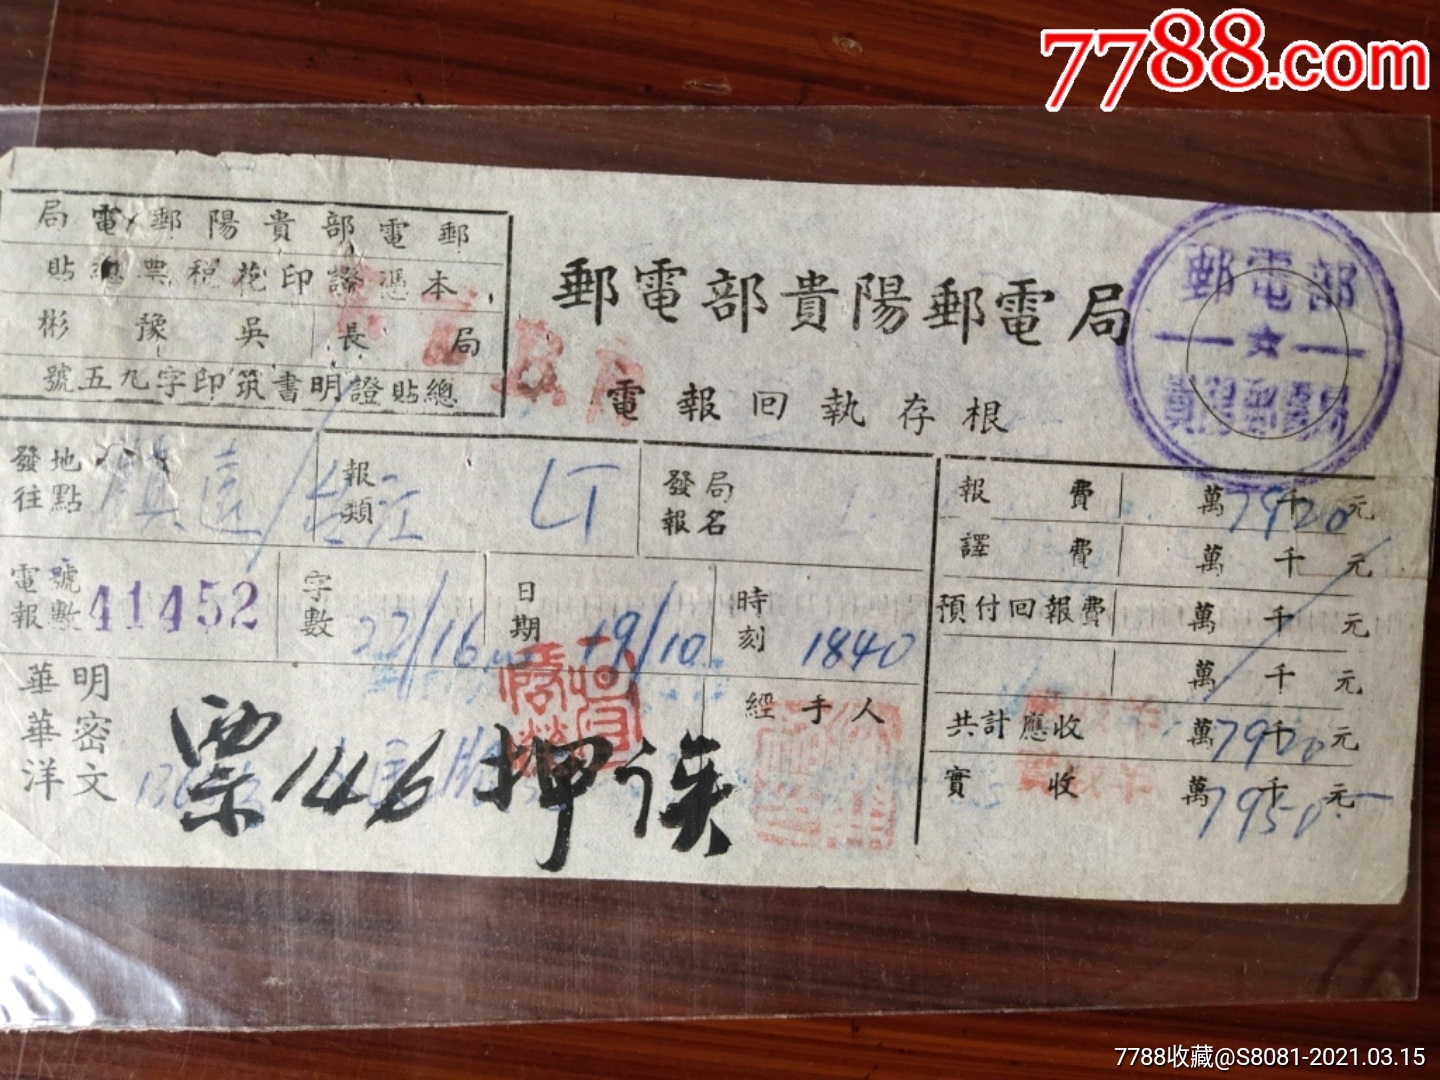 7788.com
郵電部貴陽郵電局
本憑證印花稅票總貼
局長 吳豫彬
總貼證明書筑印字九五號
郵電部貴陽郵電局
電報回執存根
郵電部
貴陽郵電局
發往地點 鎮遠/台江
報類 LT
發報局名
電報號數 41452
字數 22/16
日期 19/10
時刻 1840
華華洋 明密文
票146押
經手人
報費 萬千元 7920
譯費 萬千元
預付回報費 萬千元
萬千元
共計應收 萬千元 7920
實收 萬千元 7950
7788收藏@S8081-2021.03.15